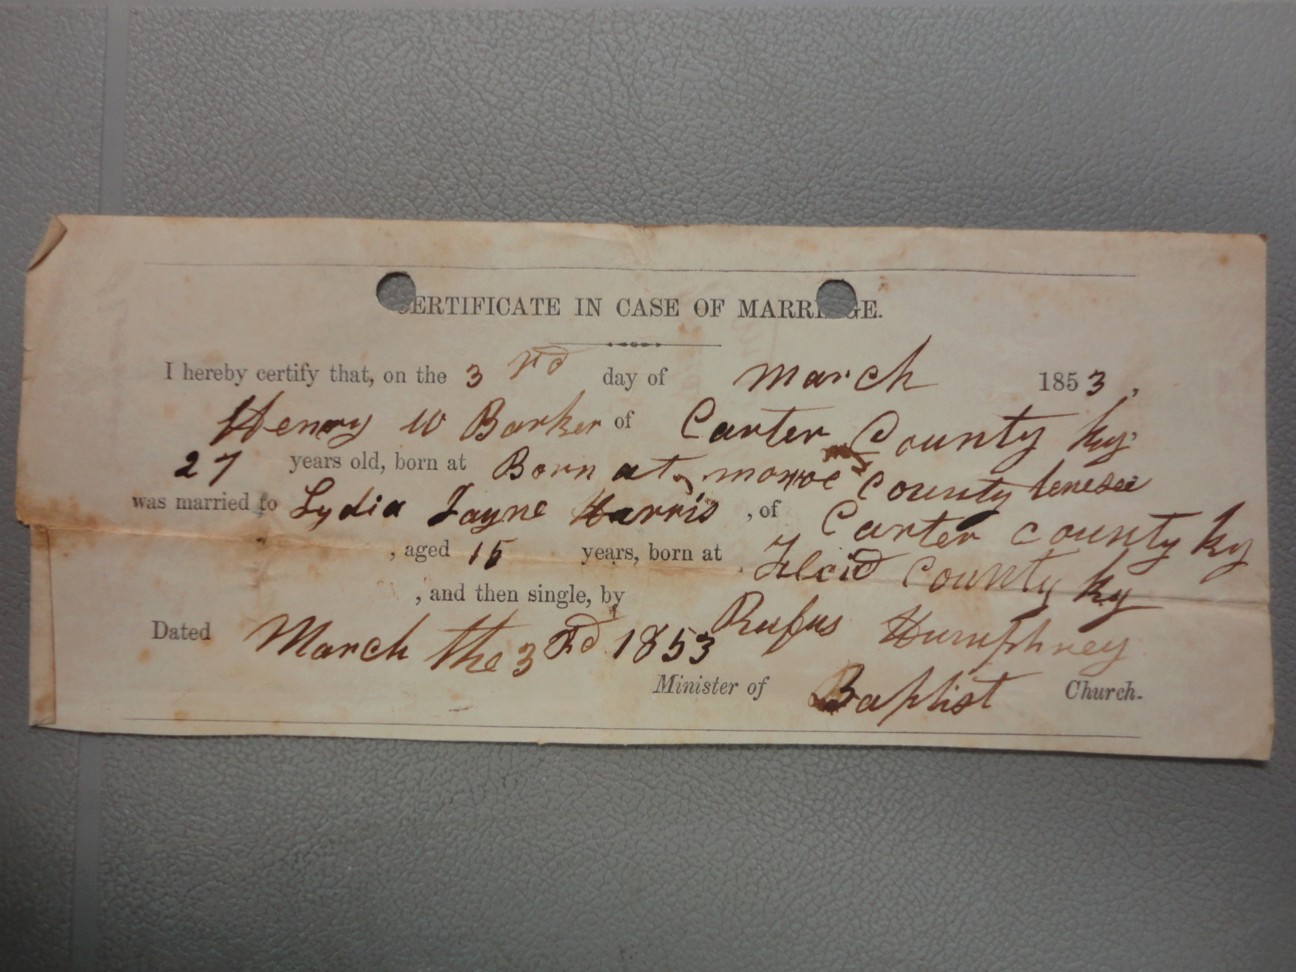 CERTIFICATE IN CASE OF MARRIAGE.
I hereby certify that, on the 3rd day of March 1853,
Henry W Barker of Carter County Ky
27 years old, born at Born at monroe County tenesee
was married to Lydia Jayne Harris, of Carter County Ky
, aged 15 years, born at County Ky
, and then single, by Rufus Humphrey
Dated March the 3rd 1853
Minister of Baptist Church.